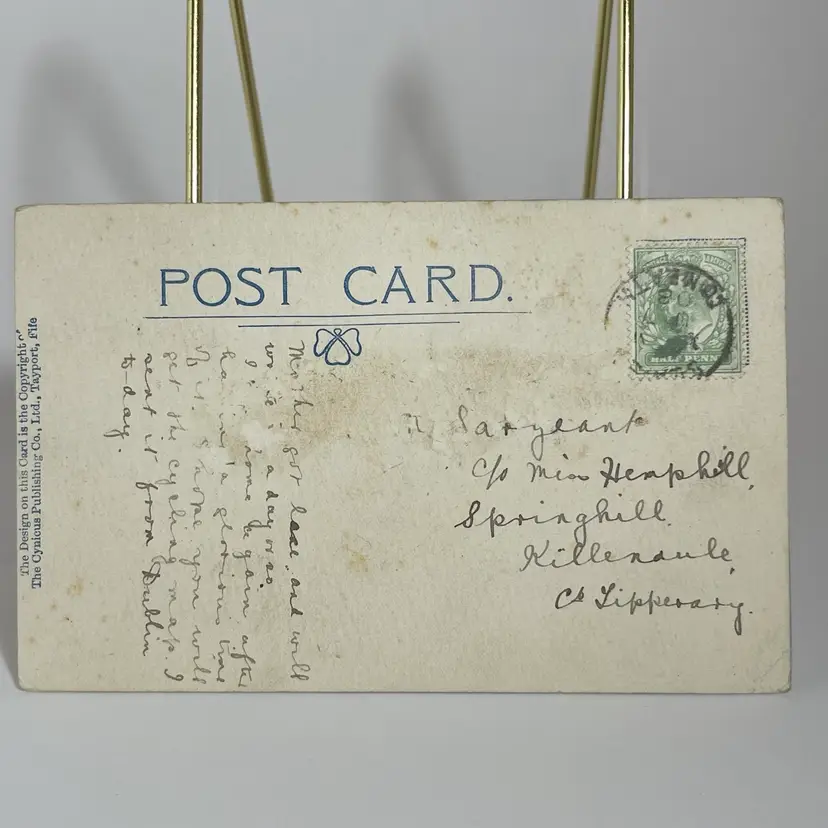 POST CARD.
The Design on this Card is the Copyright of
The Cynicus Publishing Co., Ltd., Tayport, Fife
Mother got lace and will
write in a day or so.
I home again after
having a glorious time
I hope you will
get the cycling map. I
sent it from Dublin
to-day.
HALF PENNY
Sargeant
c/o Miss Hemphill,
Springhill
Killenaule,
Co Tipperary.